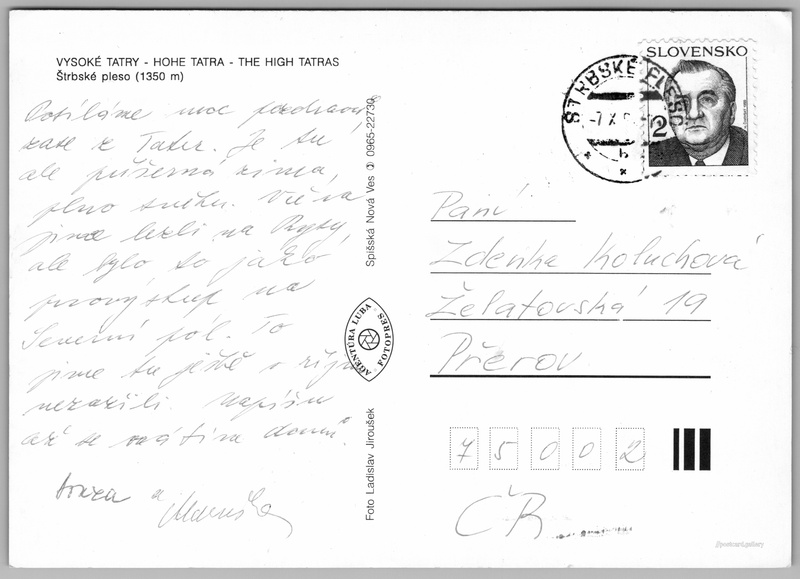 VYSOKÉ TATRY - HOHE TATRA - THE HIGH TATRAS
Štrbské pleso (1350 m)
Posíláme moc pozdravů
zase z Tater. Je tu
ale příšerná zima,
plno sněhu. Včera
jsme lezli na Rysy,
ale bylo to jako
prvovýstup na
Severní pól. To
jsme tu ještě v říjnu
nezažili. Napíšu
až se vrátím domů.
Honza a
Maruška
Spišská Nová Ves 0965-22730
AGENTÚRA LUBA
FOTOPRES
Foto Ladislav Jiroušek
ŠTRBSKÉ PLESO
-7.X
b
SLOVENSKO
2
Paní
Zdenka Koluchová
Želatovská 19
Přerov
75002
ČR
@postcard.gallery